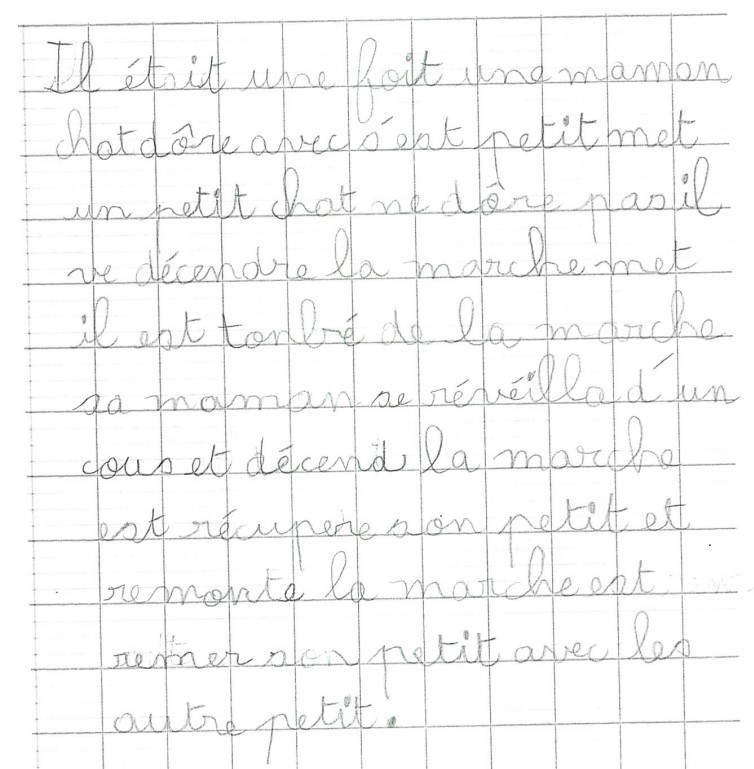 Il était une foit une maman
chat dôre avec s'est petit met
un petit chat ne dôre pas il
ve décendre la marche met
il est tonbé de la marche
sa maman se révéilla d'un
cous et décend la marche
est récupere son petit et
remonte la marche est
remer son petit avec les
autre petit.